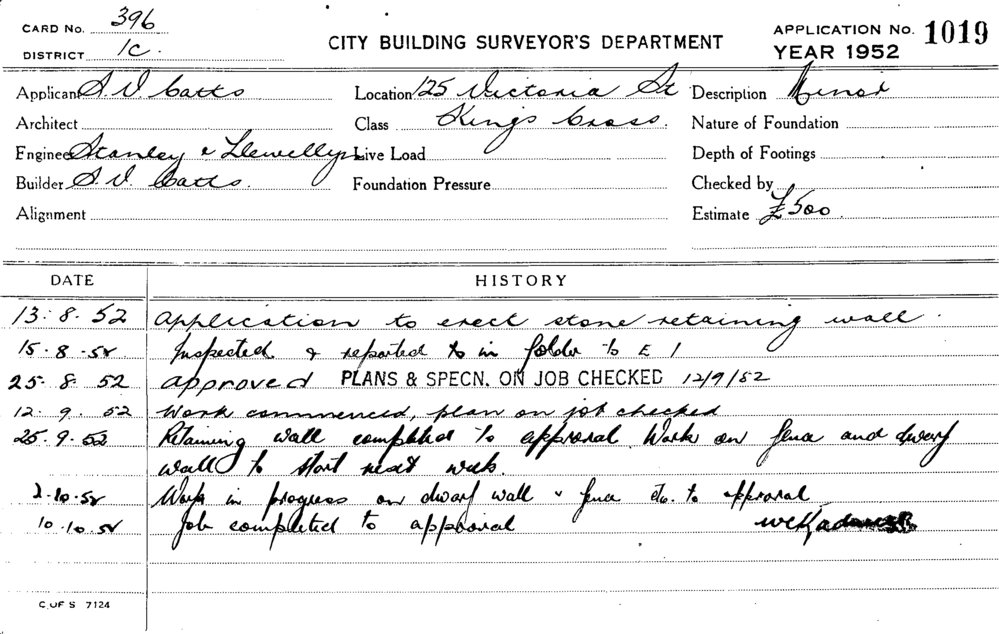 CARD No. 396
DISTRICT 1C.
CITY BUILDING SURVEYOR'S DEPARTMENT
APPLICATION No. 1019
YEAR 1952
Applicant S. V. Catts Location 125 Victoria St Description Minor
Architect Class Kings Cross. Nature of Foundation
Engineer Stanley & Llewellyn Live Load Depth of Footings
Builder S. V. Catts. Foundation Pressure Checked by
Alignment Estimate £500.
DATE HISTORY
13. 8. 52 Application to erect stone retaining wall.
15. 8. 52 Inspected & reported to in folder to E 1
25. 8. 52 Approved PLANS & SPECN. ON JOB CHECKED 12/9/52
12. 9. 52 Work commenced, plan on job checked
25. 9. 52 Retaining wall completed to approval. Work on fence and dwarf
wall to start next week.
2.10.52 Work in progress on dwarf wall & fence etc. to approval
10.10.52 Job completed to approval
C. OF S 7124